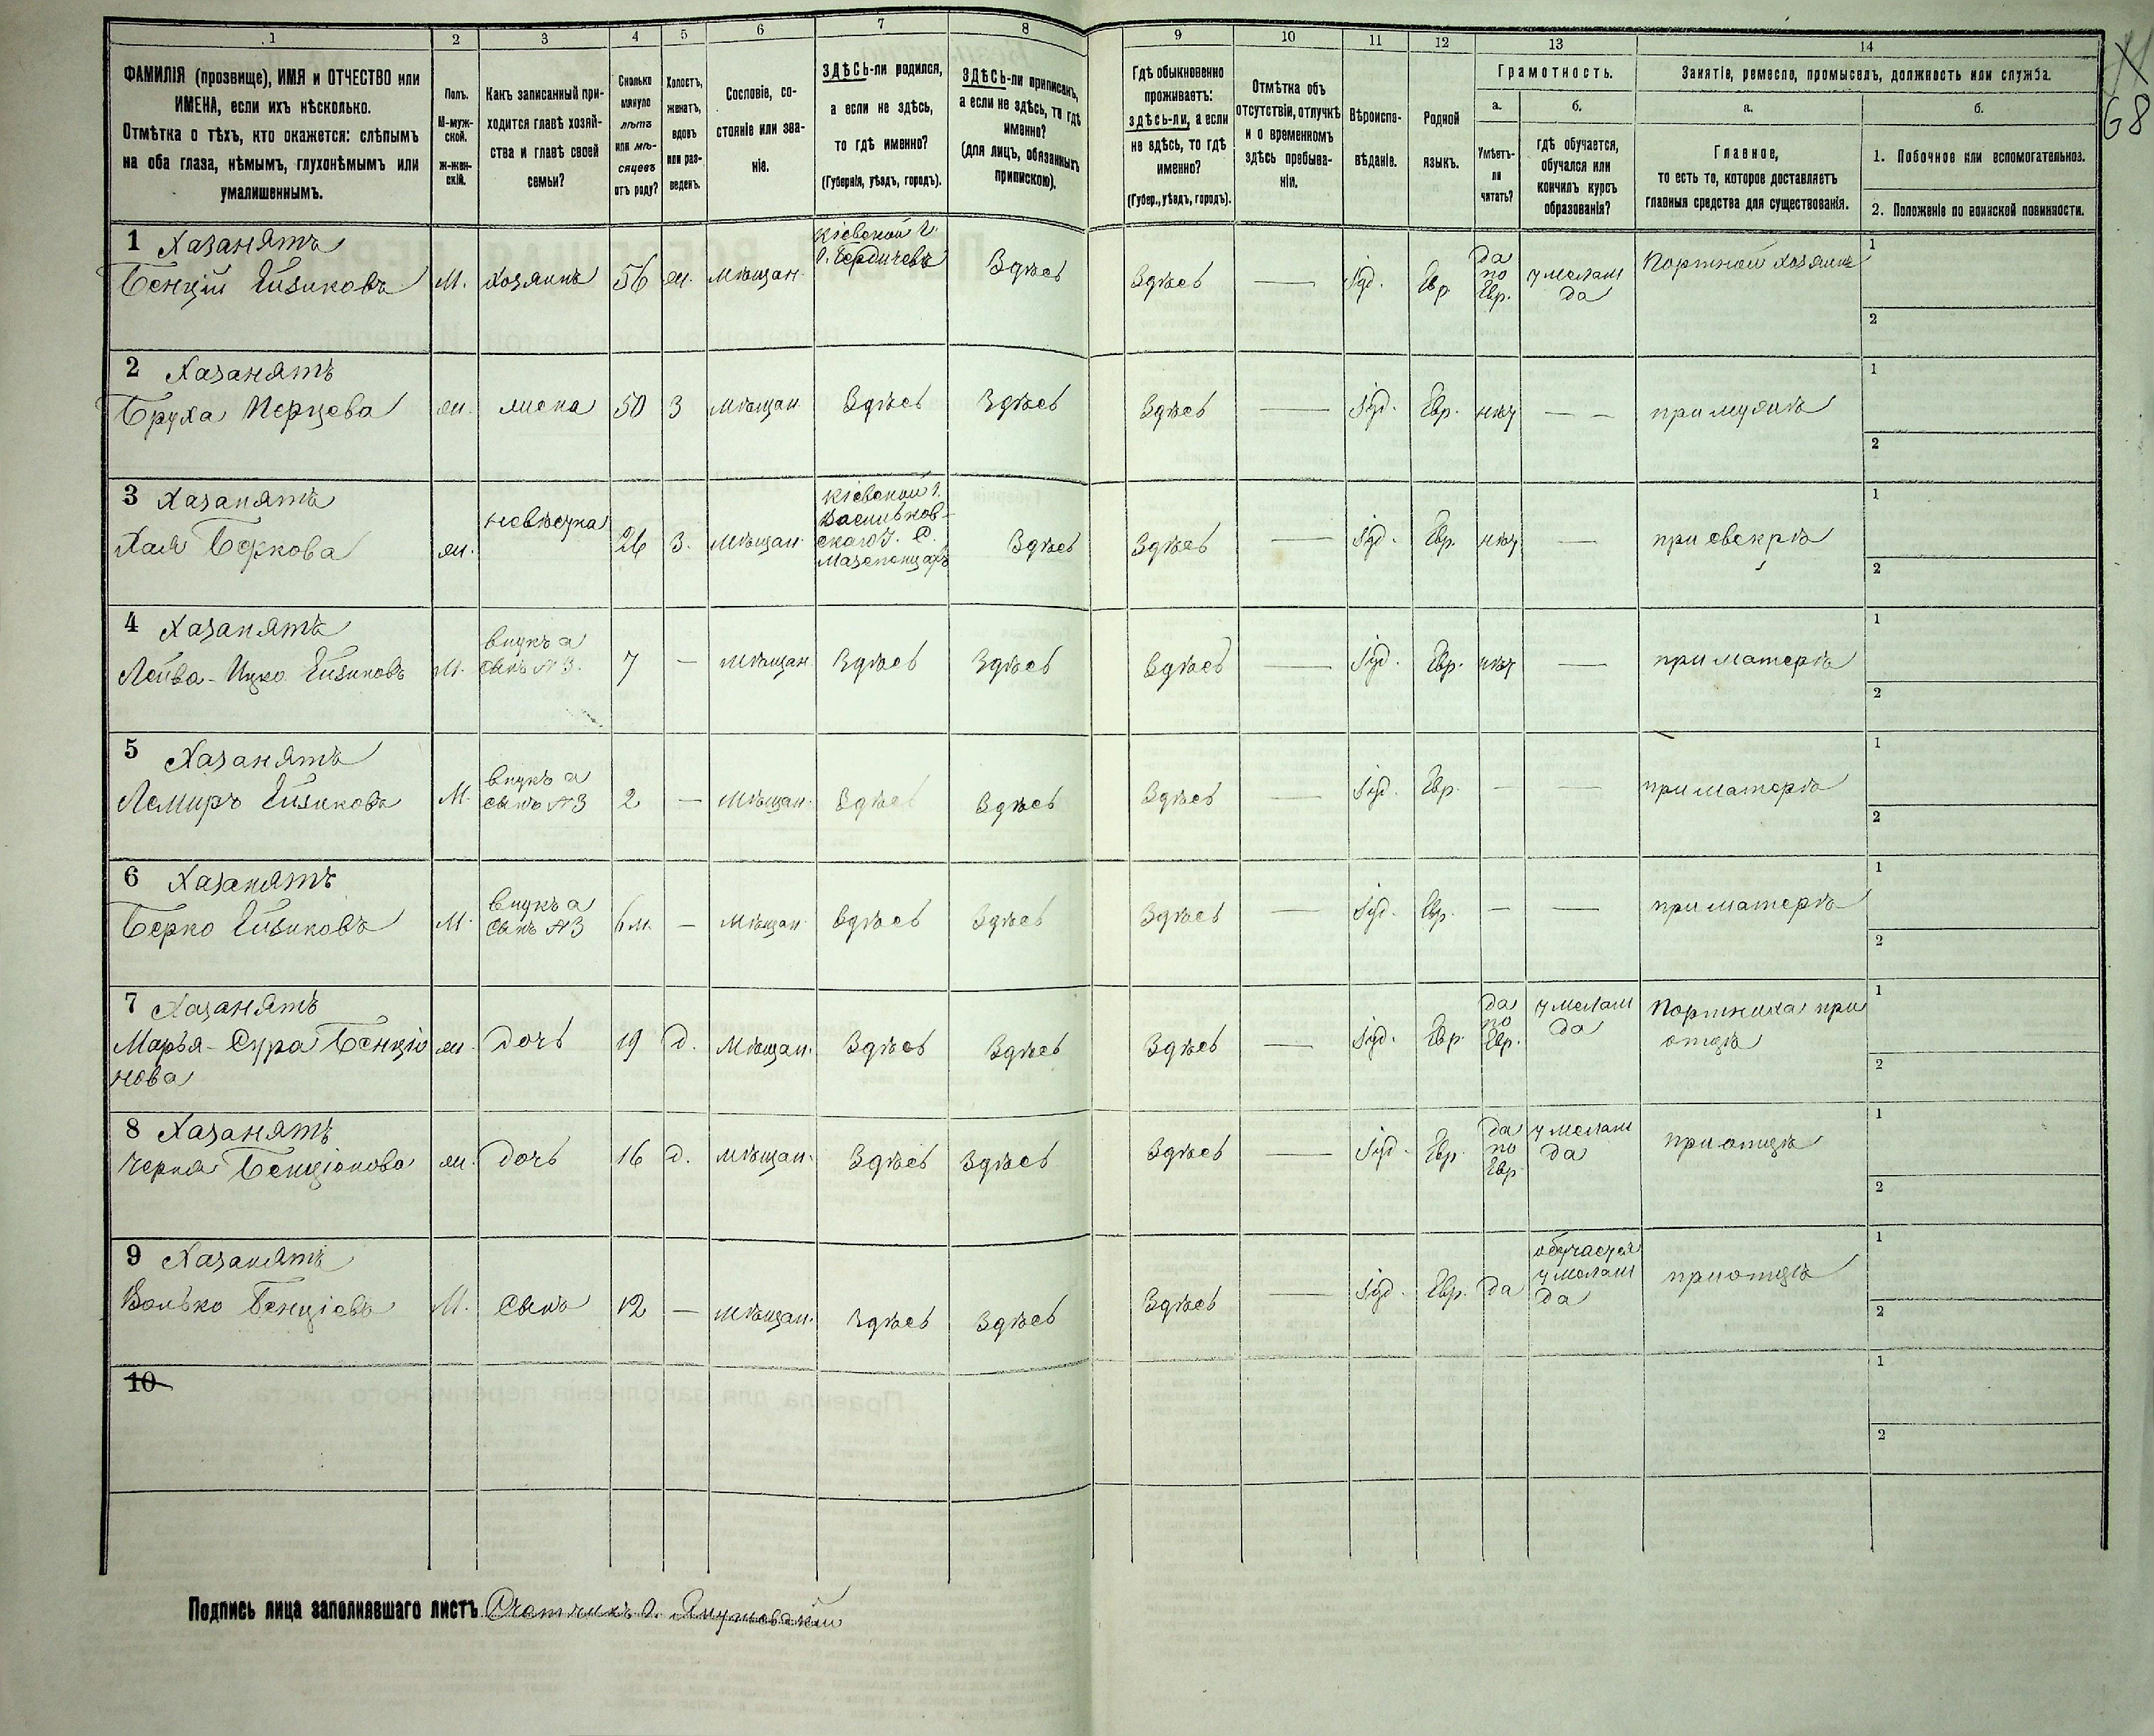 1 2 3 4 5 6 7 8 9 10 11 12 13 14
ФАМИЛІЯ (прозвище), ИМЯ и ОТЧЕСТВО или
ИМЕНА, если ихъ нѣсколько.
Отмѣтка о тѣхъ, кто окажется: слѣпымъ
на оба глаза, нѣмымъ, глухонѣмымъ или
умалишеннымъ.
Полъ.
М-муж-
ской.
ж-жен-
скій.
Какъ записанный при-
ходится главѣ хозяй-
ства и главѣ своей
семьи?
Сколько
минуло
лѣтъ
или мѣ-
сяцевъ
отъ роду?
Холостъ,
женатъ,
вдовъ
или раз-
веденъ.
Сословіе, со-
стояніе или зва-
ніе.
ЗДѢСЬ-ли родился,
а если не здѣсь,
то гдѣ именно?
(Губернія, уѣздъ, городъ).
ЗДѢСЬ-ли приписанъ,
а если не здѣсь, то гдѣ
именно?
(для лицъ, обязанныхъ
припискою).
Гдѣ обыкновенно
проживаетъ:
здѣсь-ли, а если
не здѣсь, то гдѣ
именно?
(Губер., уѣздъ, городъ).
Отмѣтка объ
отсутствіи, отлучкѣ
и о временномъ
здѣсь пребыва-
ніи.
Вѣроиспо-
вѣданіе.
Родной
языкъ.
Грамотность.
а.
Умѣетъ-
ли
читать?
б.
гдѣ обучается,
обучался или
кончилъ курсъ
образованія?
Занятіе, ремесло, промыселъ, должность или служба.
а.
Главное,
то есть то, которое доставляетъ
главныя средства для существованія.
б.
1. Побочное или вспомогательное.
2. Положеніе по воинской повинности.
68
1 Хазанятъ
Бенцій Ейзиковъ
М.
хозяинъ
56
ж.
мѣщан.
Кіевской г.
г. Бердичевъ
Здѣсь
Здѣсь
—
Іуд.
Евр.
да
по
Евр.
у мелам
да
Портной хозяинъ
1
2
2 Хазанятъ
Бруха Перцева
ж.
жена
50
З
мѣщан.
Здѣсь
Здѣсь
Здѣсь
—
Іуд.
Евр.
нѣт
— —
при мужѣ
1
2
3 Хазанятъ
Хая Беркова
ж.
невѣстка
26
З.
мѣщан.
Кіевской г.
Васильков-
скаго у. С.
Здѣсь
Здѣсь
—
Іуд.
Евр.
нѣт
—
при свекрѣ
1
2
4 Хазанятъ
Лейва-Ицко Ейзиковъ
М.
внукъ а
сынъ №3.
7
—
мѣщан.
Здѣсь
Здѣсь
Здѣсь
—
Іуд.
Евр.
нѣт
—
при матерѣ
1
2
5 Хазанятъ
Лемиръ Ейзиковъ
М.
внукъ а
сынъ №3
2
—
мѣщан.
Здѣсь
Здѣсь
Здѣсь
—
Іуд.
Евр.
—
—
при матерѣ
1
2
6 Хазанятъ
Берко Ейзиковъ
М.
внукъ а
сынъ №3
6 м.
—
мѣщан.
Здѣсь
Здѣсь
Здѣсь
—
Іуд.
Евр.
—
—
при матерѣ
1
2
7 Хазанятъ
Марья-Сура Бенціо
нова
ж.
дочь
19
д.
мѣщан.
Здѣсь
Здѣсь
Здѣсь
—
Іуд.
Евр.
да
по
Евр.
у мелам
да
Портниха при
отцѣ
1
2
8 Хазанятъ
Черня Бенціонова
ж.
дочь
16
д.
мѣщан.
Здѣсь
Здѣсь
Здѣсь
—
Іуд.
Евр.
да
по
Евр.
у мелам
да
при отцѣ
1
2
9 Хазанятъ
Волько Бенціевъ
М.
сынъ
12
—
мѣщан.
Здѣсь
Здѣсь
Здѣсь
—
Іуд.
Евр.
да
обучается
у мелам
да
при отцѣ
1
2
10
1
2
Подпись лица заполнявшаго листъ Счетчикъ